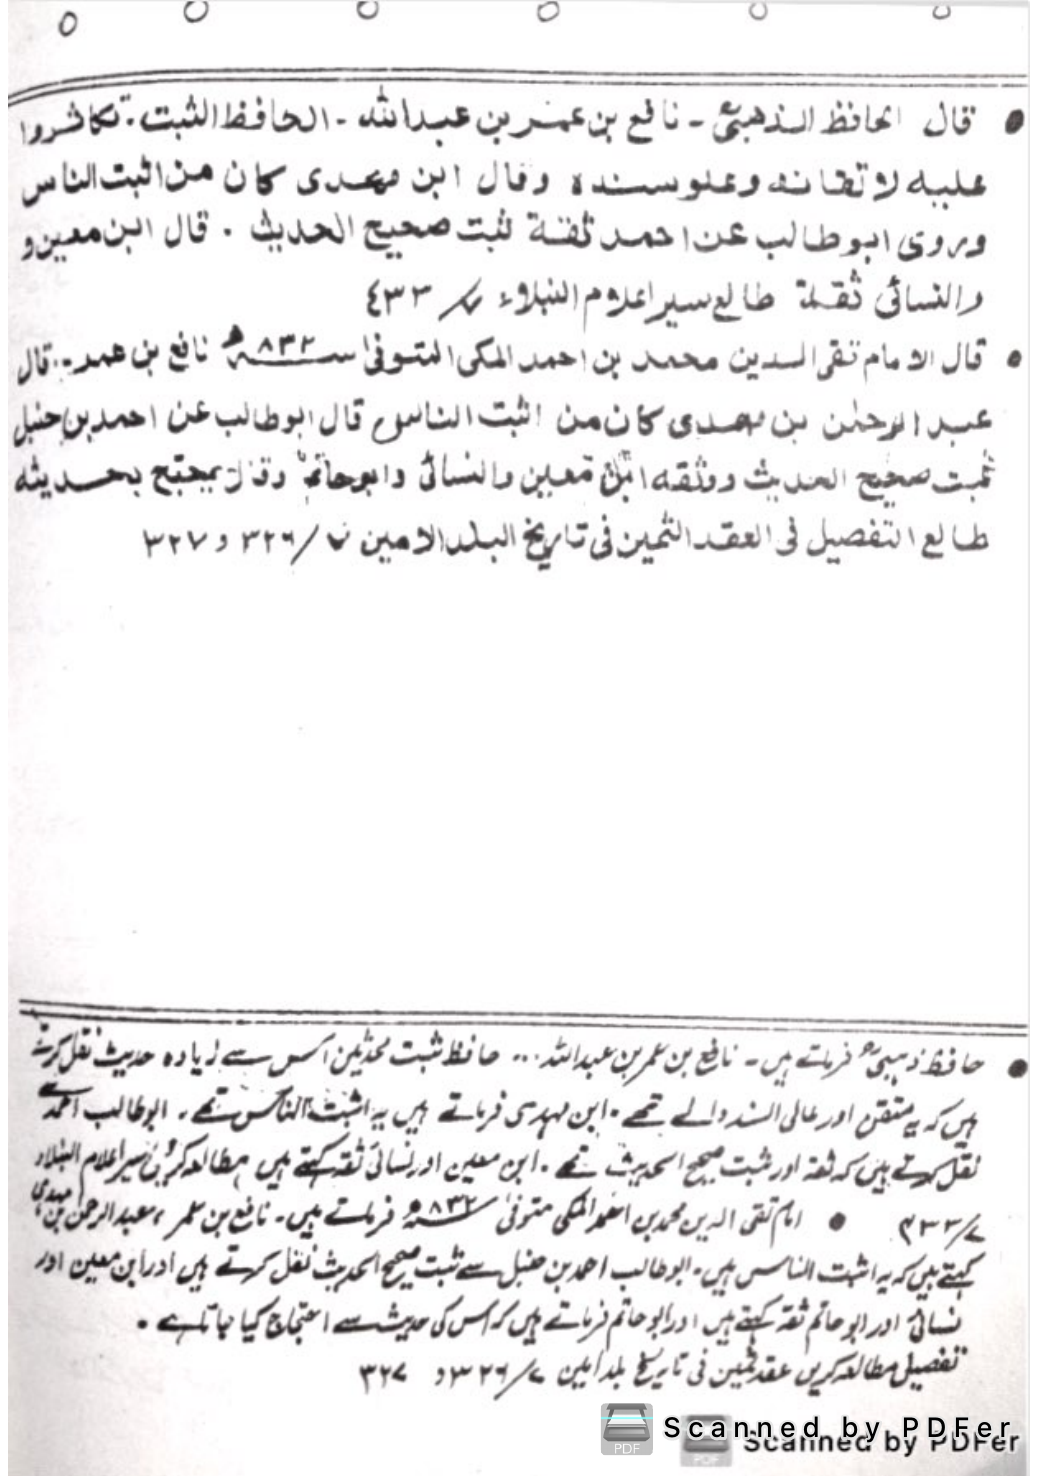 • قال الحافظ الذهبیؒ ۔ نافع بن عمر بن عبداللہ ۔ الحافظ الثبت ۔ تکاثروا
علیہ لاتقانہ وعلوسندہ وقال ابن مھدی کان من اثبت الناس
وروی ابوطالب عن احمد ثقۃ ثبت صحیح الحدیث ۔ قال ابن معین و
والنسائی ثقۃ طالع سیر اعلام النبلاء ۷/ ٤٣٣
• قال الامام تقی الدین محمد بن احمد المکی المتوفیٰ سنہ ۸۳۲ھ نافع بن عمر ۔ قال
عبد الرحمٰن بن مھدی کان من اثبت الناس قال ابوطالب عن احمد بن حنبل
ثبت صحیح الحدیث وثقہ ابن معین والنسائی وابوحاتم وقال یحتج بحدیثہ
طالع التفصیل فی العقد الثمین فی تاریخ البلد الامین ۷/ ۳۲٦ و ۳۲۷
• حافظ ذہبیؒ فرماتے ہیں ۔ نافع بن عمر بن عبداللہ ... حافظ ثبت محدثین اس سے زیادہ حدیث نقل کرتے
ہیں کہ یہ متقن اور عالی السند والے تھے ۔ ابن مہدی فرماتے ہیں یہ اثبت الناس تھے ۔ ابوطالب احمد سے
نقل کرتے ہیں کہ ثقہ اور ثبت صحیح الحدیث تھے ۔ ابن معین اور نسائی ثقہ کہتے ہیں مطالعہ کریں سیر اعلام النبلاء
۷/۴۳۳ • امام تقی الدین محمد بن احمد المکی متوفیٰ سنہ ۸۳۲ھ فرماتے ہیں ۔ نافع بن عمر ، عبد الرحمٰن بن مہدی
کہتے ہیں کہ یہ اثبت الناس ہیں ۔ ابوطالب احمد بن حنبل سے ثبت صحیح الحدیث نقل کرتے ہیں اور ابن معین اور
نسائی اور ابو حاتم ثقہ کہتے ہیں اور ابو حاتم فرماتے ہیں کہ اس کی حدیث سے احتجاج کیا جاتا ہے ۔
تفصیل مطالعہ کریں عقد ثمین فی تاریخ بلد امین ۷/ ۳۲۶ و ۳۲۷
Scanned by PDFer
Scanned by PDFer